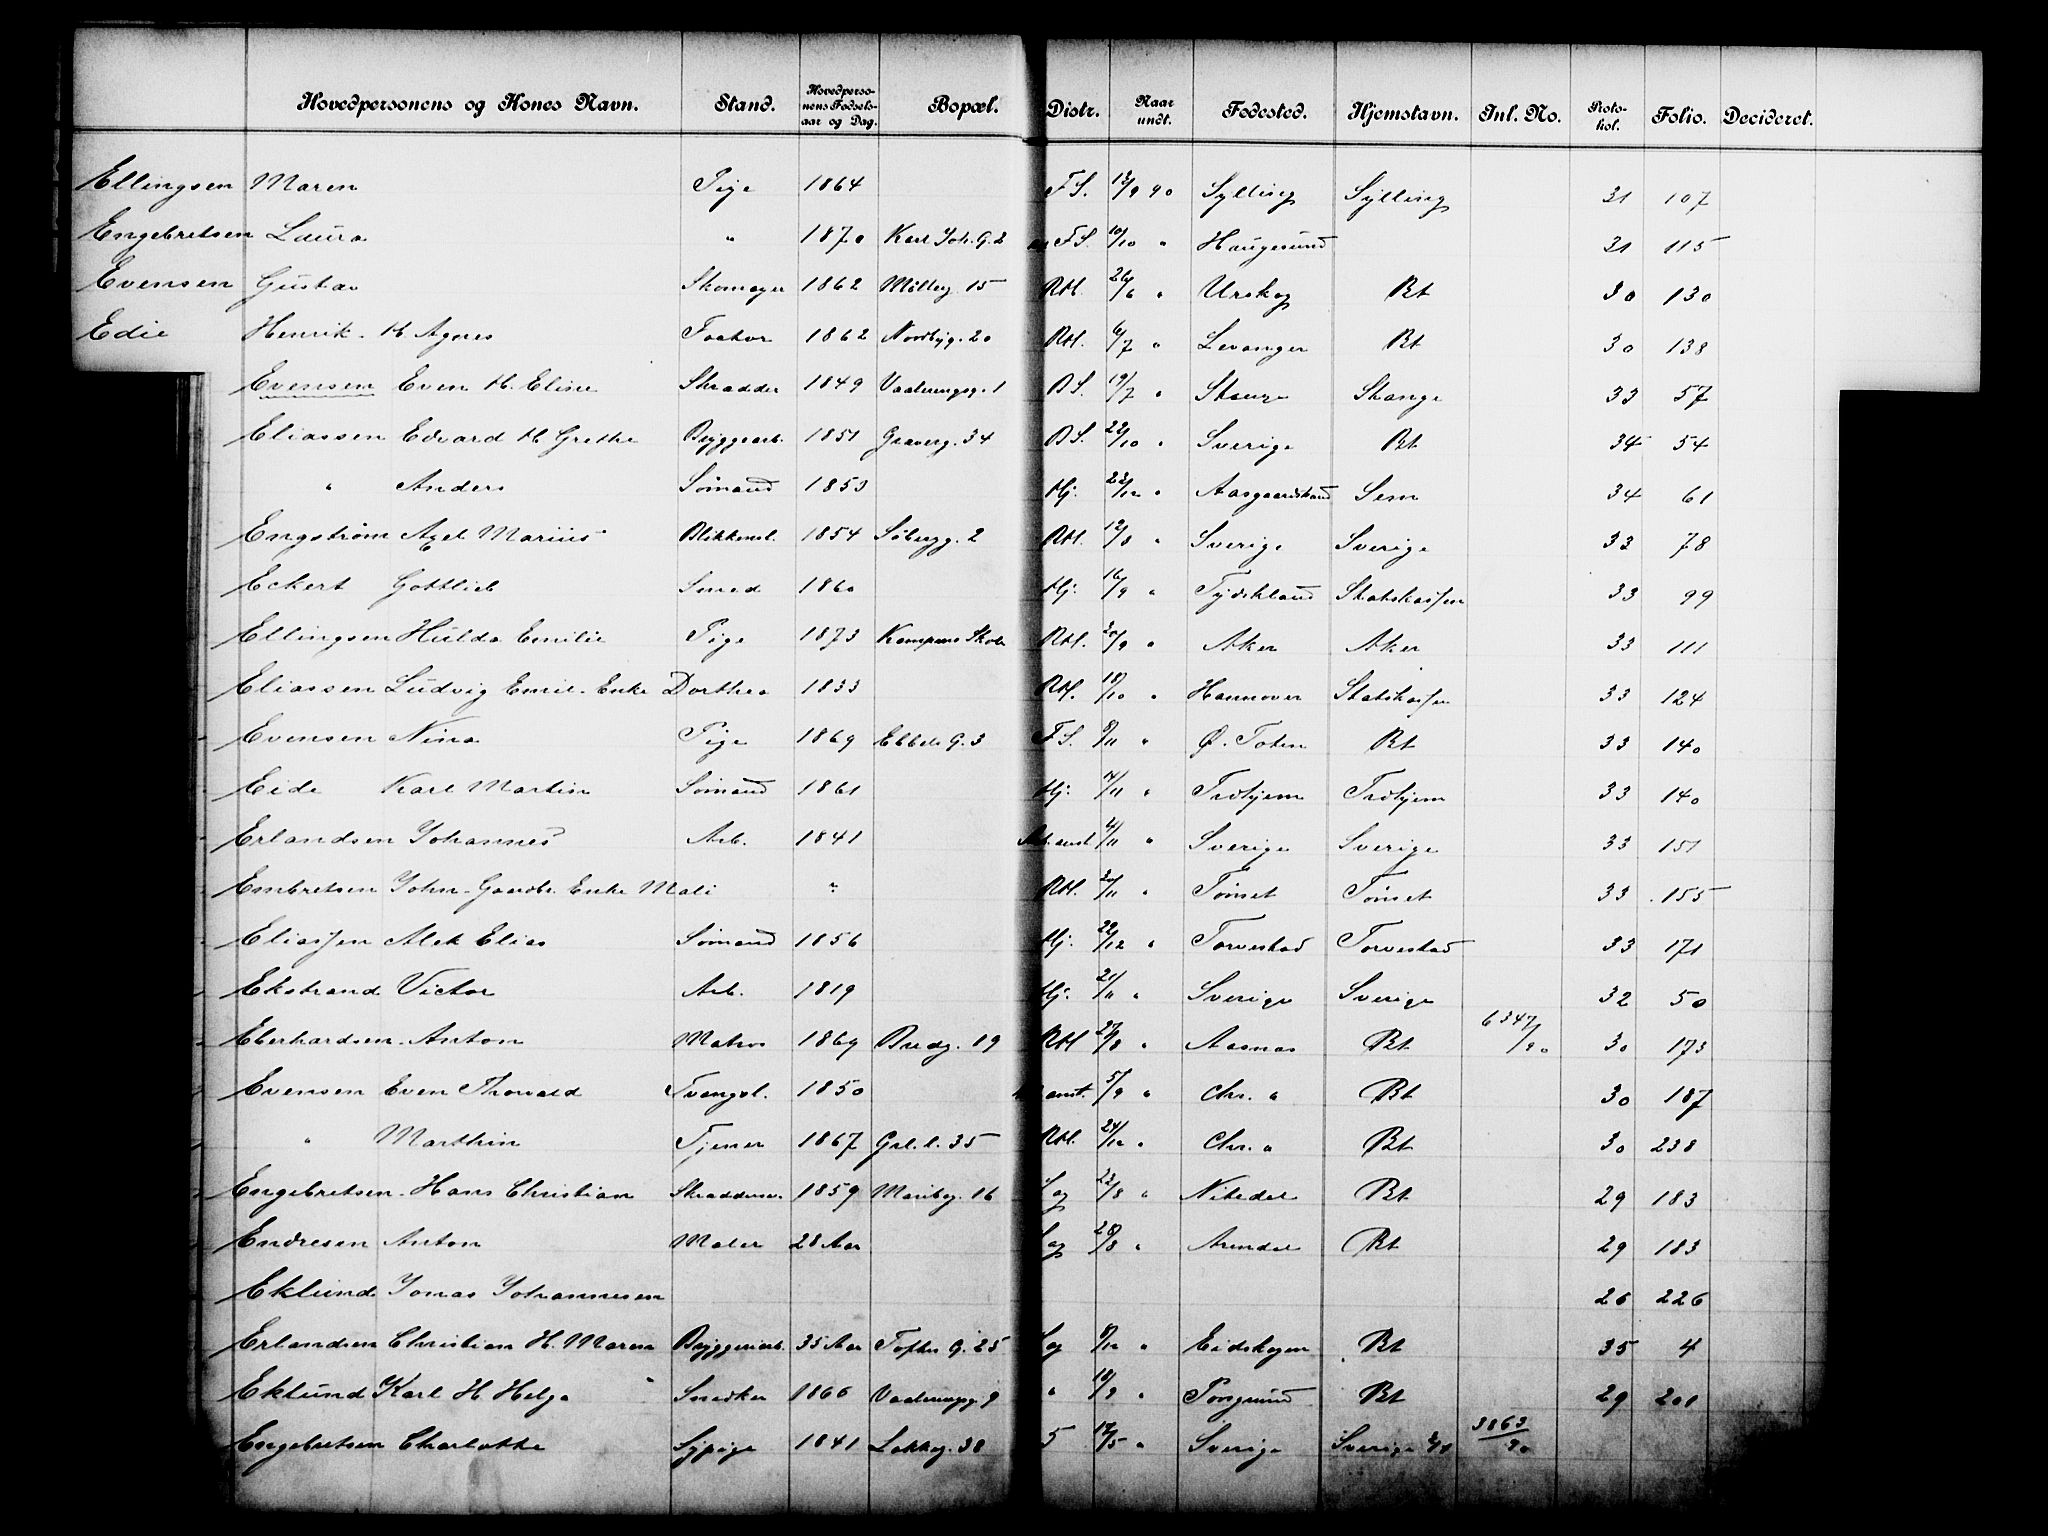 Hovedpersonens og Kones Navn. Stand. Hovedpersonens Fødselsaar og Dag. Bopæl. Distr. Naar undt. Fødested. Hjemstavn. Inl. No. Protokol. Folio. Decideret.
Ellingsen Maren Pige 1864 FS. 13/9 90 Sylling Sylling 31 107
Engebretsen Laura " 1870 Karl Joh. G. 2 FS. 10/10 " Haugesund 31 115
Evensen Gustav Skomager 1862 Møllerg. 15 Rbl. 26/6 " Urskog Bt 30 130
Edie Henrik. H. Agnes 1862 Nordbyg. 20 Rbl. 6/7 " Levanger Bt 30 138
Evensen Even H. Eline Skrædder 1849 Vaalerengg. 1 BS. 19/7 " Stange Stange 33 57
Eliassen Edvard H. Grethe Bryggearb. 1851 Graverg. 34 BS. 22/10 " Sverige Bt 34 54
" Anders Sømand 1853 Hj. 22/12 " Aasgaardstrand Sem 34 61
Engstrøm Axel Marius Blikkensl. 1854 2 Rbl. 12/8 " Sverige Sverige 33 78
Eckert Gottlieb Smed 1860 Hj. 16/9 " Tydskland Statskassen 33 99
Ellingsen Hulda Emilie Pige 1873 Kampens Skole Rbl. 20/9 " Aker Aker 33 111
Eliassen Ludvig Emil. Enke Dorthea 1833 Rbl. 18/10 " Hannover Statskassen 33 124
Evensen Nina Pige 1869 Ebbels G. 3 FS. 8/11 " Ø. Toten Bt 33 140
Eide Karl Martin Sømand 1861 Hj. 4/11 " Trdhjem Trdhjem 33 140
Erlandsen Johannes Arb. 1841 anst. 4/11 " Sverige Sverige 33 151
Embretsen John. Gaardbr. Enke Mali " Rbl. 20/11 " Tønset Tønset 33 155
Eliassen Alek Elias Sømand 1856 Hj. 22/12 " Torvestad Torvestad 33 171
Ekstrand Victor Arb. 1819 Hj. 21/11 " Sverige Sverige 32 50
Eberhardsen. Anton Matros 1869 Bredg. 19 Rbl 27/8 " Aasnes Bt 6347/90 30 173
Evensen Even Thorvald Tvangsl. 1850 anst. 5/9 " Chr. a Bt 30 187
" Marthin Tjener 1867 Grl. l. 35 Rbl. 24/12 " Chr. a Bt 30 238
Engebretsen. Hans Christian Skræddersv. 1859 Maribog. 16 Sag 23/8 " Nitedal Bt 29 183
Endresen Anton Maler 28 Aar Sag 28/8 " Arendal Bt 29 183
Eklund Jonas Johannesen 26 226
Erlandsen Christian H. Maren Bryggeriarb. 35 Aar Toftes G. 25 Sag 8/12 " Eidskogen Bt 35 4
Eklund Karl H. Helga Snedker 1866 Vaalerengg. 9 " 18/9 " Porsgrund Bt 29 201
Engebretsen Charlotte Sypige 1841 Lakkeg. 38 5 12/5 " Sverige Sverige 3863/90